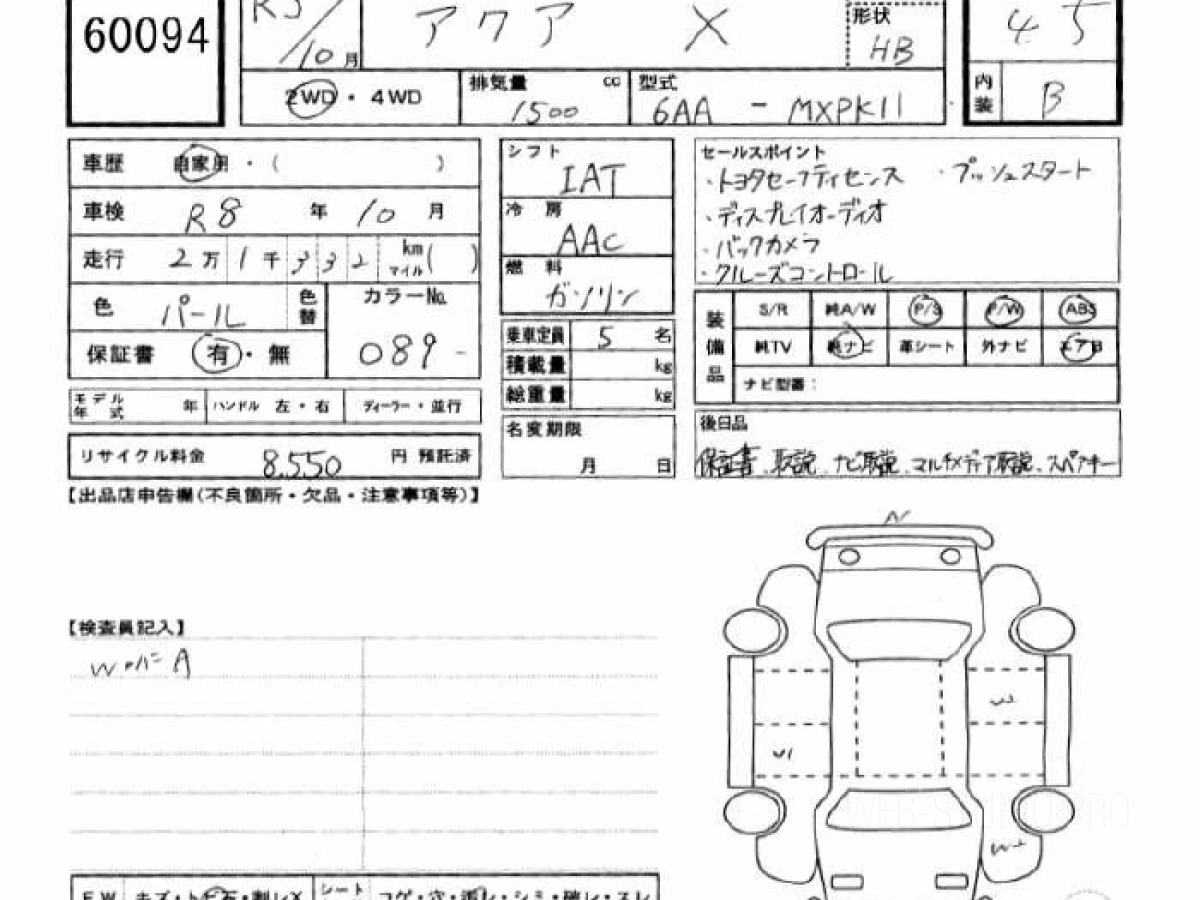 60094
R5/10月
アクア X
形状 HB
4.5
2WD・4WD
排気量 cc 1500
型式 6AA - MXPK11
内装 B
車歴 自家用・( )
車検 R8 年 10 月
走行 2万1千332 km マイル( )
色 パール 色替
カラーNo. 089 -
保証書 有・無
シフト IAT
冷房 AAC
燃料 ガソリン
乗車定員 5 名
積載量 kg
総重量 kg
名変期限 月 日
セールスポイント
・トヨタセーフティセンス ・プッシュスタート
・ディスプレイオーディオ
・バックカメラ
・クルーズコントロール
装備品
S/R 純A/W P/S P/W ABS
純TV 純ナビ 革シート 外ナビ エアB
ナビ型番:
モデル年式 年 ハンドル 左・右 ディーラー・並行
リサイクル料金 8,550 円 預託済
後日品
保証書、取説、ナビ取説、マルチメディア取説、スペアキー
【出品店申告欄(不良箇所・欠品・注意事項等)】
【検査員記入】
A
W1
F.W キズ・トビ石・割レX
シート コゲ・穴・汚レ・シミ・破レ・スレ